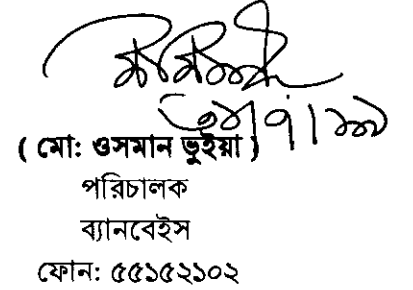 ( মো: ওসমান ভূইয়া )
পরিচালক
ব্যানবেইস
ফোন: ৫৫১৫২১০২